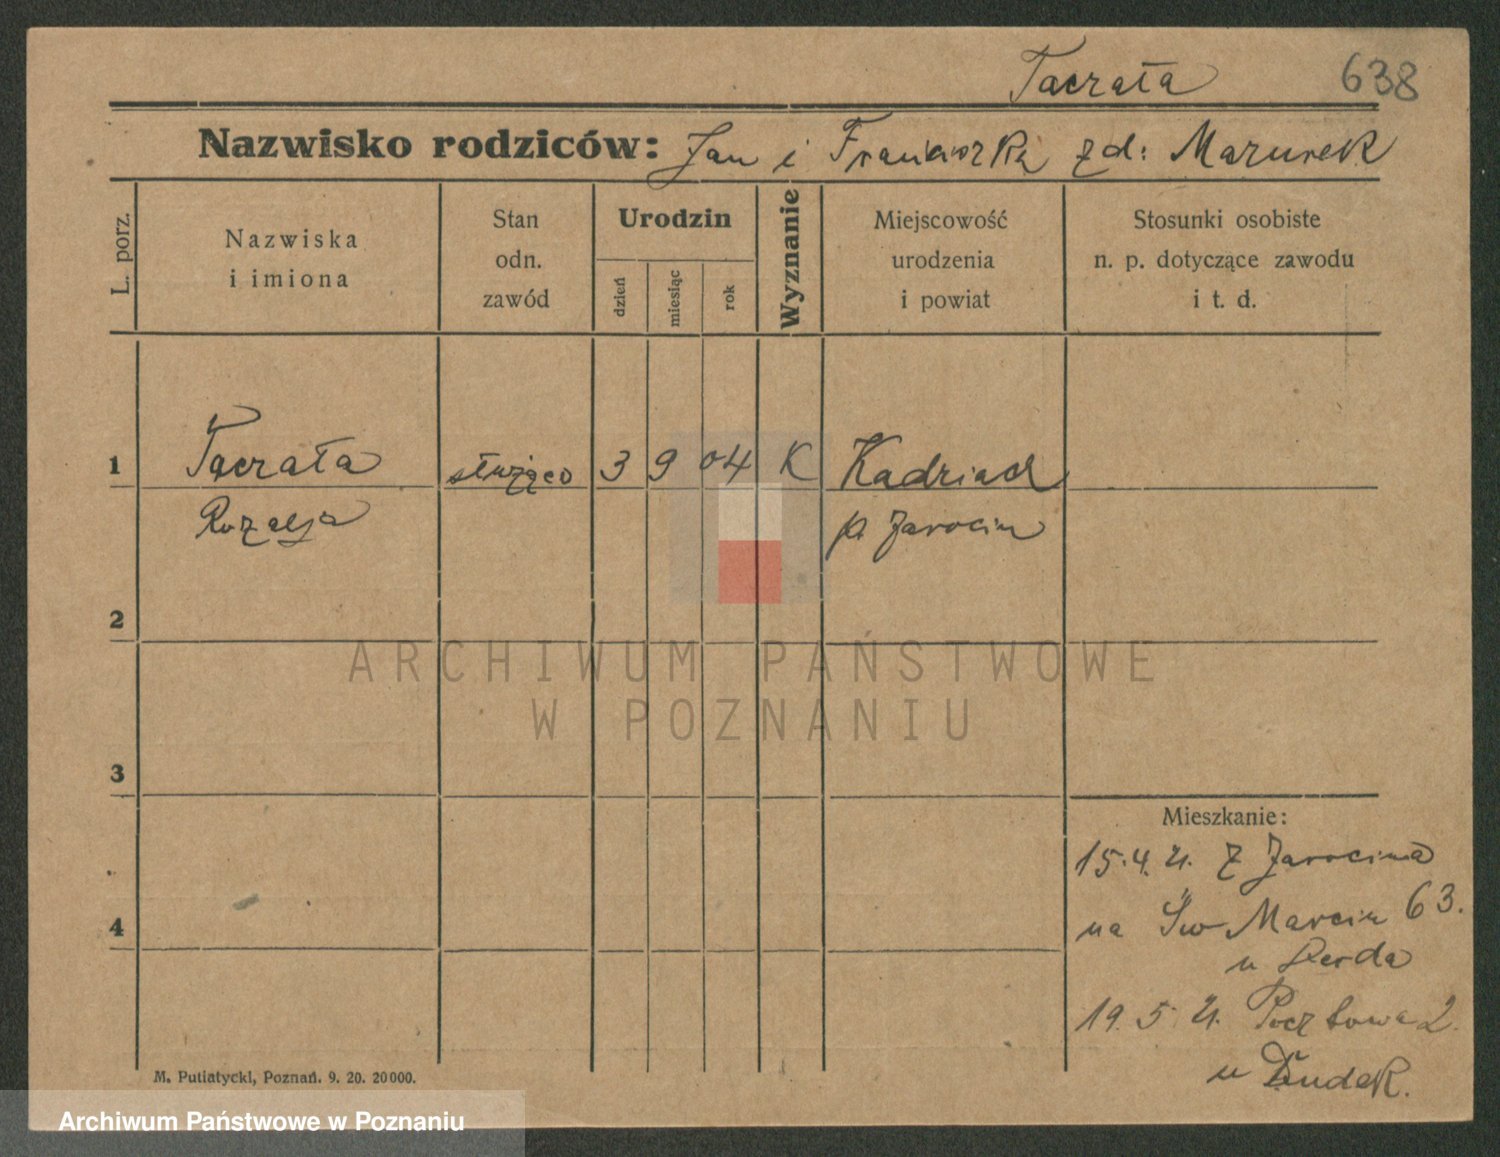 Taerata 638
Nazwisko rodziców: Jan i Franciszka zd: Mazurek
L. porz.
Nazwiska
i imiona
Stan
odn.
zawód
Urodzin
dzień
miesiąc
rok
Wyznanie
Miejscowość
urodzenia
i powiat
Stosunki osobiste
n. p. dotyczące zawodu
i t. d.
1 Taerata służąco 3 9 04 K Kadziad
Rozalja p. Jarocin
2
ARCHIWUM PAŃSTWOWE
W POZNANIU
3
Mieszkanie:
15.4.21. z Jarocina
4
na Św Marcin 63.
u Lerda
19.5 21. Pocztowa 2.
u Dudek.
M. Putiatycki, Poznań. 9. 20. 20000.
Archiwum Państwowe w Poznaniu